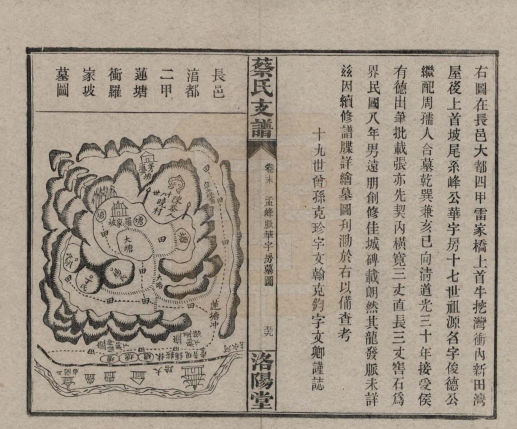 右圖在長邑大都四甲雷家橋上首牛挖灣衝內新田灣
屋後上首坡尾系峰公華字房十七世祖源名字俊德公
繼配周孺人合墓乾巽兼亥巳向清道光三十年接受侯
有德出筆批載張亦先契內橫寬三丈直長三丈窖石為
界民國八年男遠朋創修佳城碑載朗然其龍發脈未詳
茲因續修譜牒詳繪墓圖刋泐於右以備查考
十九世曾孫克珍字文翰克鈞字文卿謹誌
蔡氏支譜
卷末
孟峰派華字房墓圖
洛陽堂
長邑
涪都
二甲
蓮塘
衝羅
家坡
墓圖
大塘
蓮塘冲